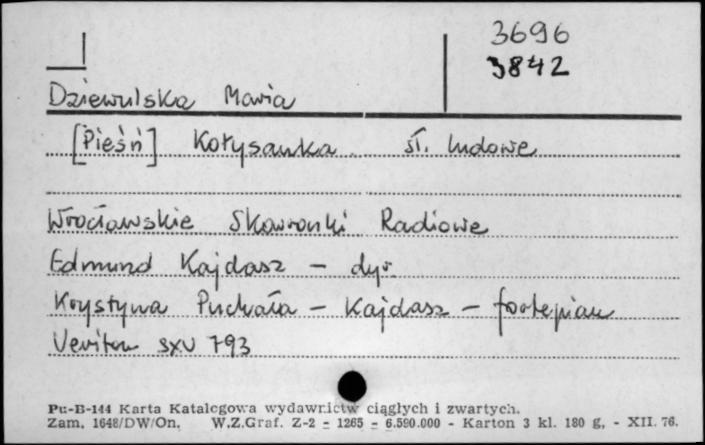 3696
3842
Dziewulska Maria
[Pieśń] Kołysanka sł. ludowe
Wrocławskie Skowronki Radiowe
Edmund Kajdasz - dyr.
Krystyna Puchała - Kajdasz - fortepian
Veriton SXV 793
Pu-B-144 Karta Katalogowa wydawnictw ciągłych i zwartych.
Zam. 1648/DW/On. W.Z.Graf. Z-2 - 1265 - 6.590.000 - Karton 3 kl. 180 g, - XII. 76.